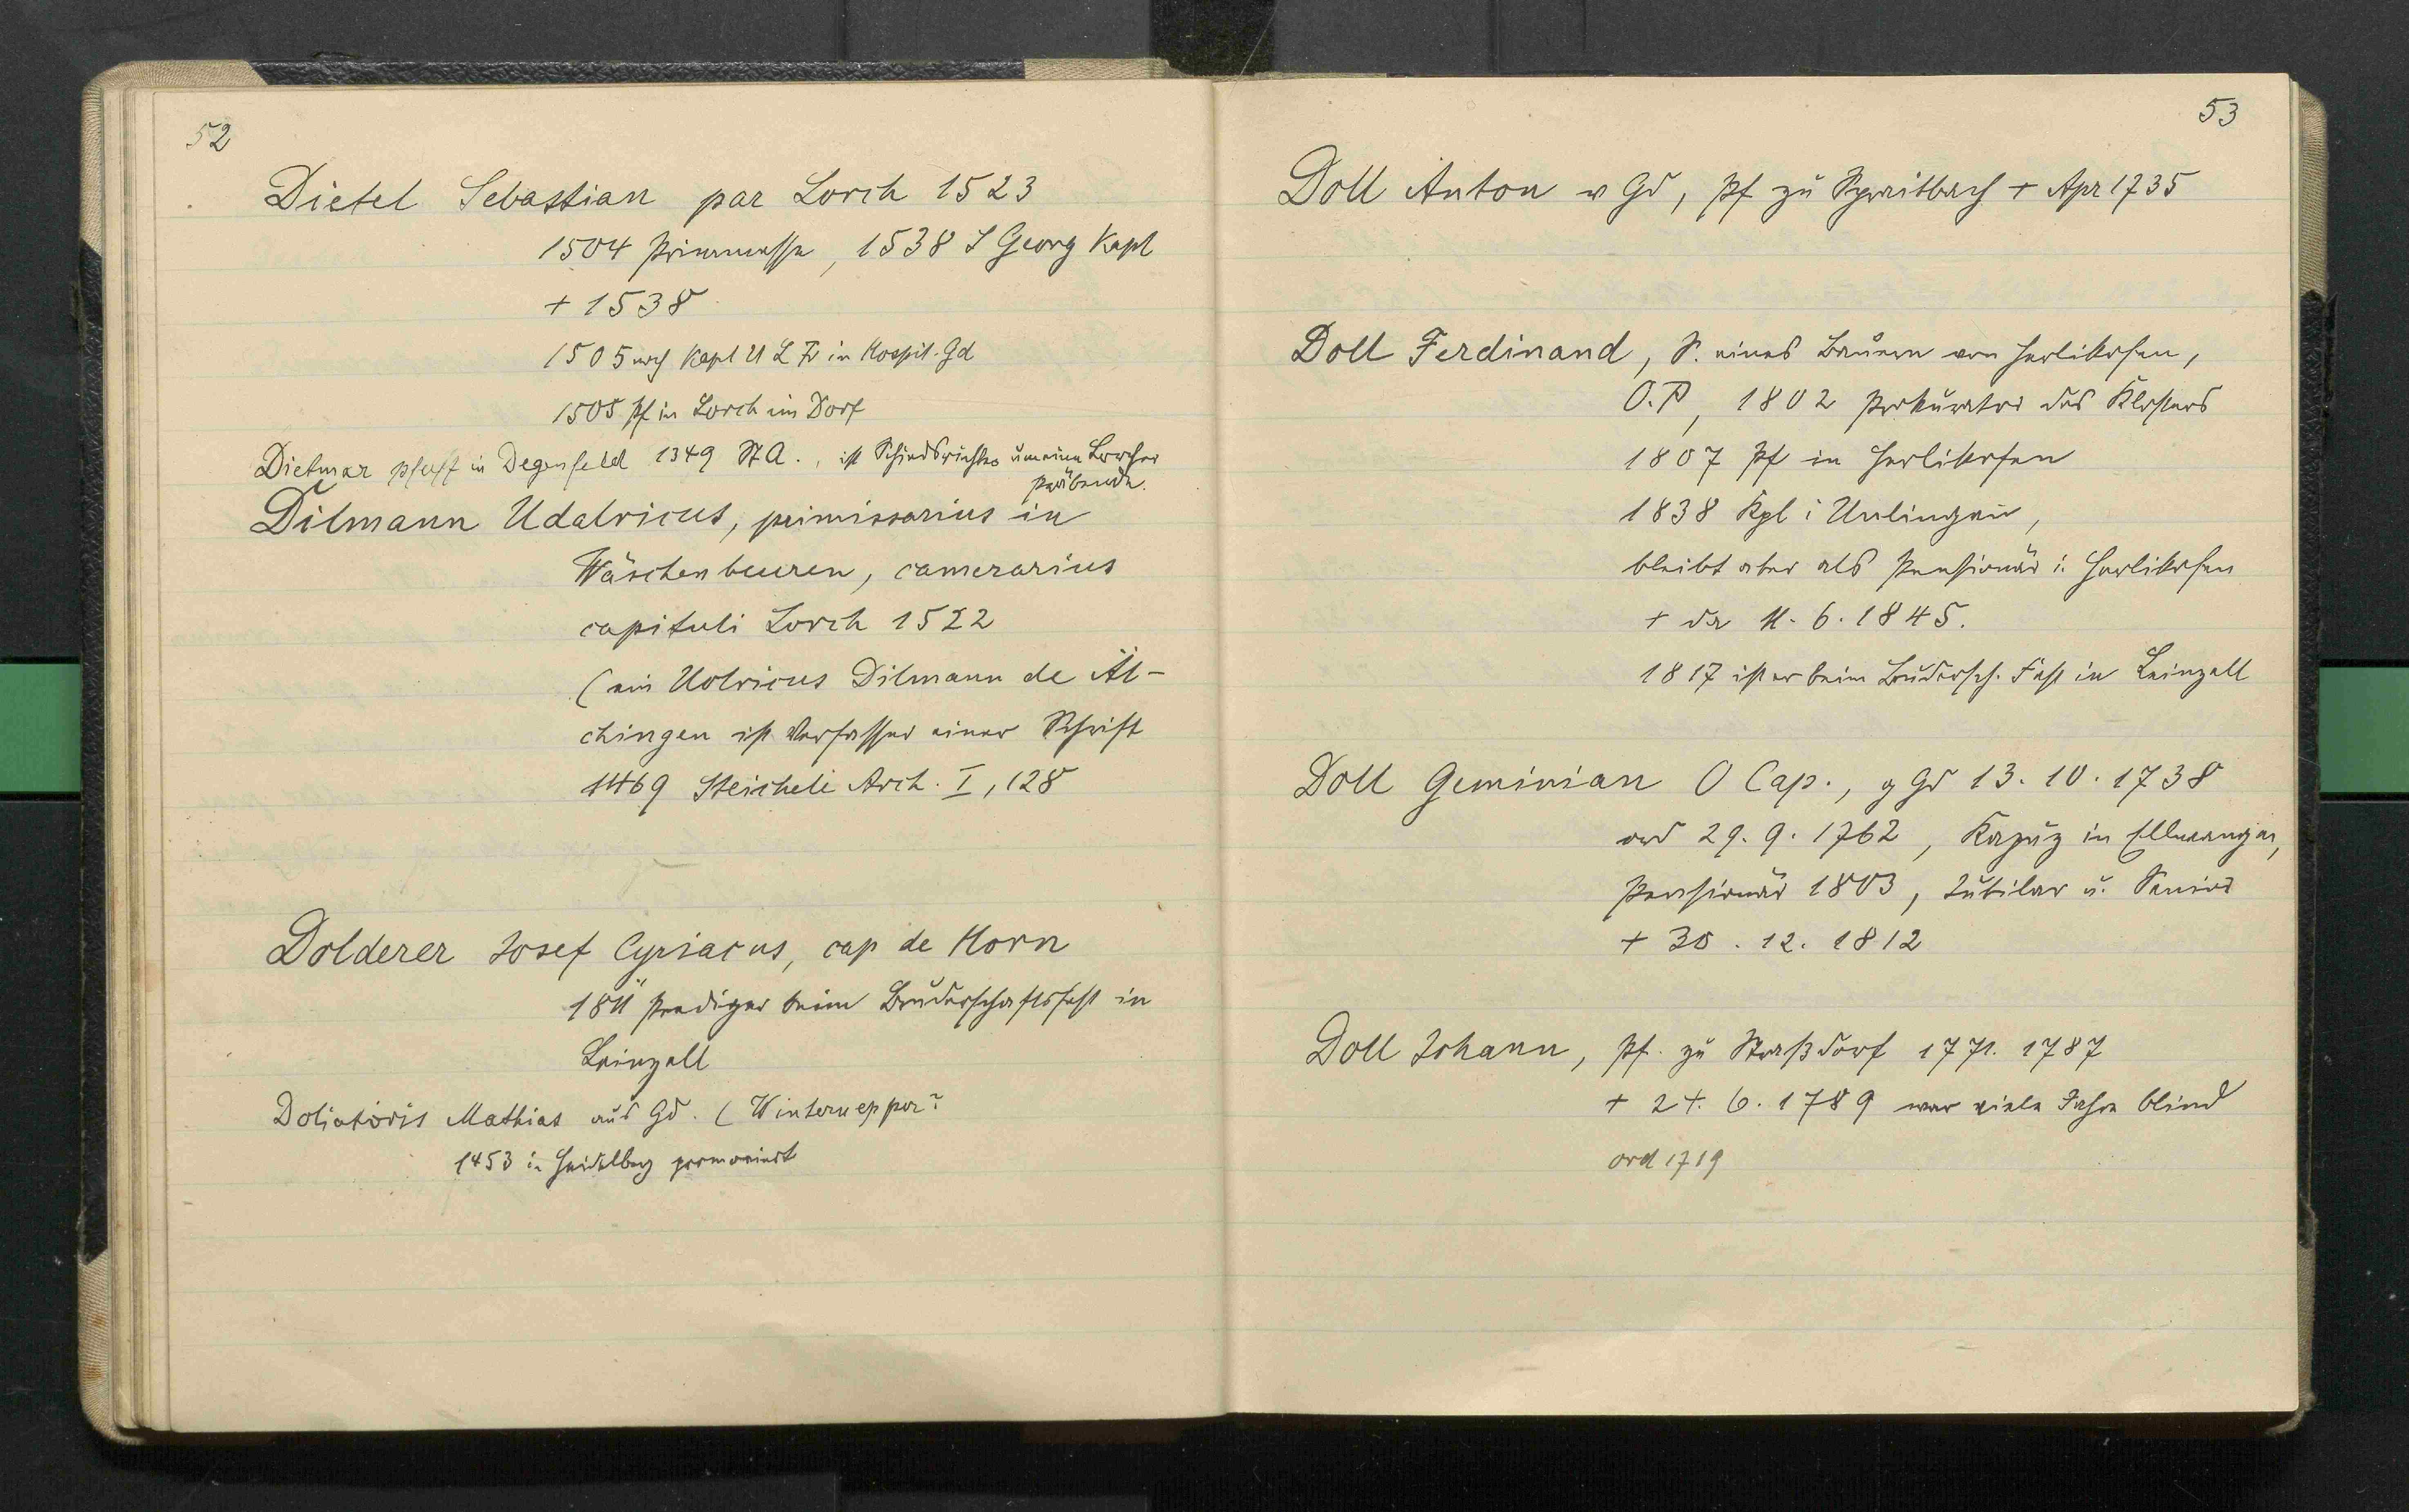 52
Dietel Sebastian par Lorch 1523
1504 Primmesse, 1538 S Georg Kapl
+ 1538
1505 auch Kapl U L Fr in Hospit. Gd
1505 Pf in Lorch im Dorf
Dietmar pfaff in Degenfeld 1349 St A., ist Schiedsrichter um eine Lorcher
Präbende.
Dilmann Udalricus, primissarius in
Wäschenbeuren, camerarius
capituli Lorch 1522
(ein Uolricus Dilmann de Äl-
chingen ist Verfasser einer Schrift
1469 Steichele Arch. I, 128
Dolderer Josef Cyriacus, cap de Horn
1811 Prediger beim Bruderschaftsfest in
Leinzell
Doliatoris Mathias aus Gd. (
1453 in Heidelberg promoviert
53
Doll Anton v Gd, Pf zu Spraitbach + Apr 1735
Doll Ferdinand, S. eines Bauern von Herlikofen,
O.P, 1802 Prokurator des Klosters
1807 Pf in Herlikofen
1838 Kpl i Unlingen,
bleibt aber als Pensionär i. Herlikofen
+ da 11. 6. 1845.
1817 ist er beim Brudersch. Fest in Leinzell
Doll Geminian O Cap., g Gd 13. 10. 1738
ord 29. 9. 1762, Kapuz in Ellwangen,
Pensionär 1803, Jubilar u. Senior
+ 30. 12. 1812
Doll Johann, Pf. zu Straßdorf 1771. 1787
+ 24. 6. 1789 war viele Jahre blind
ord 1719